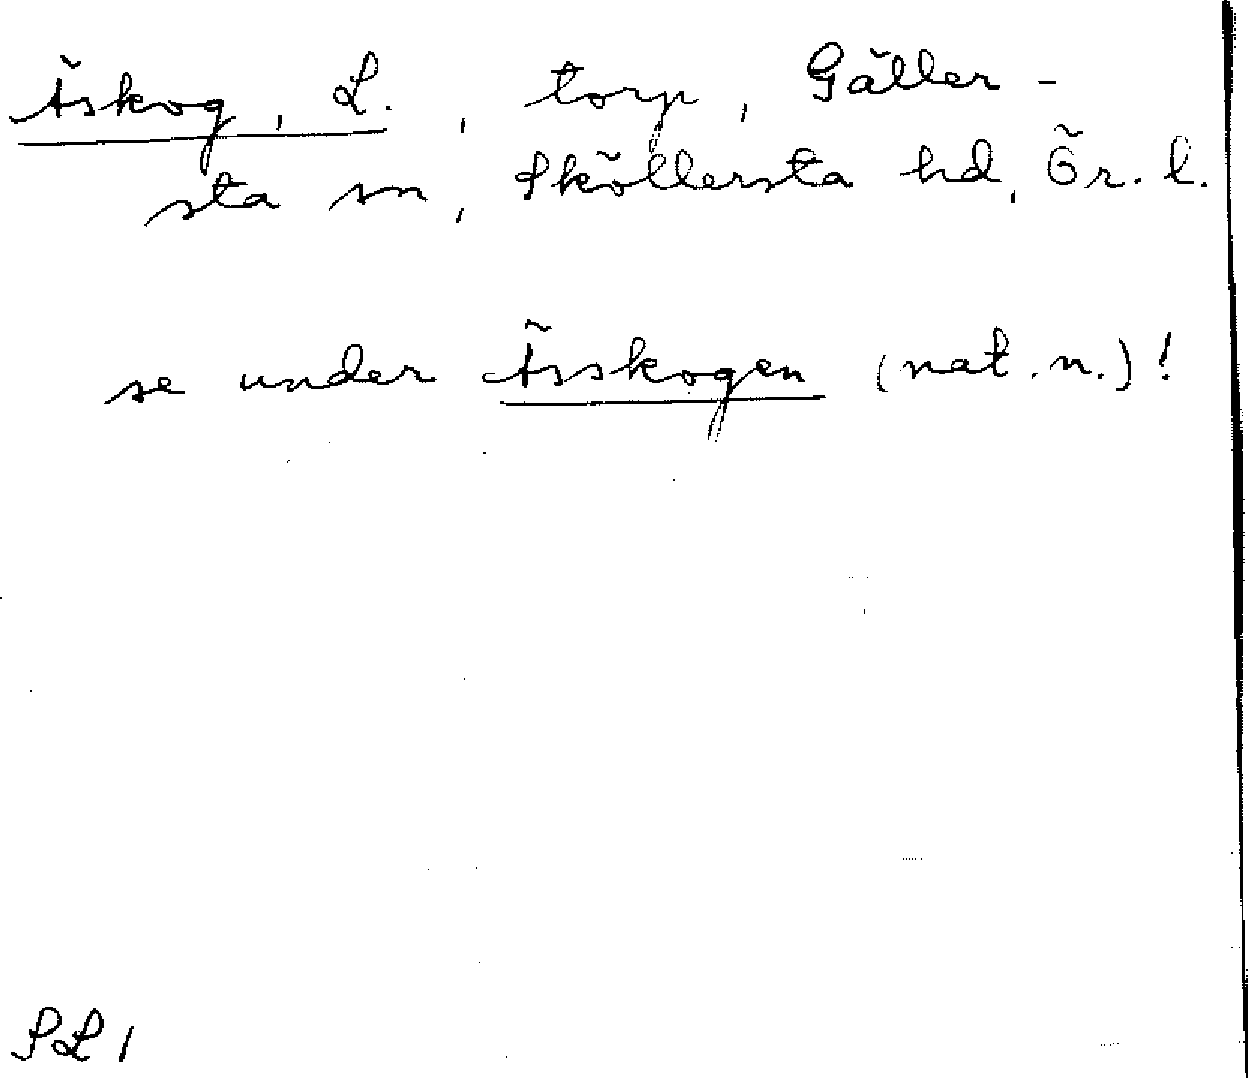 Äskog, L., torp, Gäller-
sta sn, Sköllersta hd, Ör. l.
se under Ässkogen (nat. n.)!
SL 1